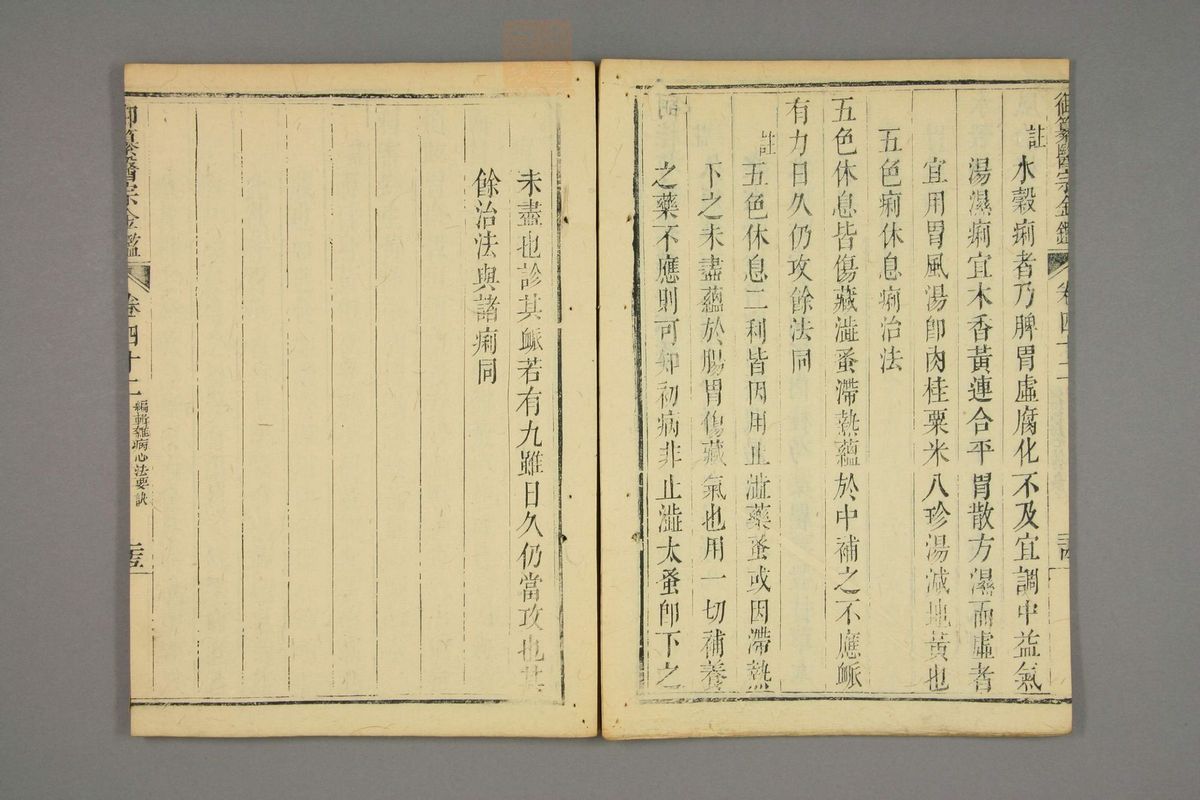 御纂醫宗金鑑
卷四十二
註水穀痢者乃脾胃虛腐化不及宜調中益氣
湯濕痢宜木香黃連合平胃散方濕而虛者
宜用胃風湯卽肉桂粟米八珍湯減地黃也
五色痢休息痢治法
五色休息皆傷藏澁蚤滯熱蘊於中補之不應脈
有力日久仍攻餘法同
註五色休息二利皆因用止澁藥蚤或因滯熱
下之未盡蘊於腸胃傷藏氣也用一切補養
之藥不應則可知初病非止澁太蚤卽下之
未盡也診其脈若有力雖日久仍當攻也其
餘治法與諸痢同
御纂醫宗金鑑
卷四十二
編輯雜病心法要訣